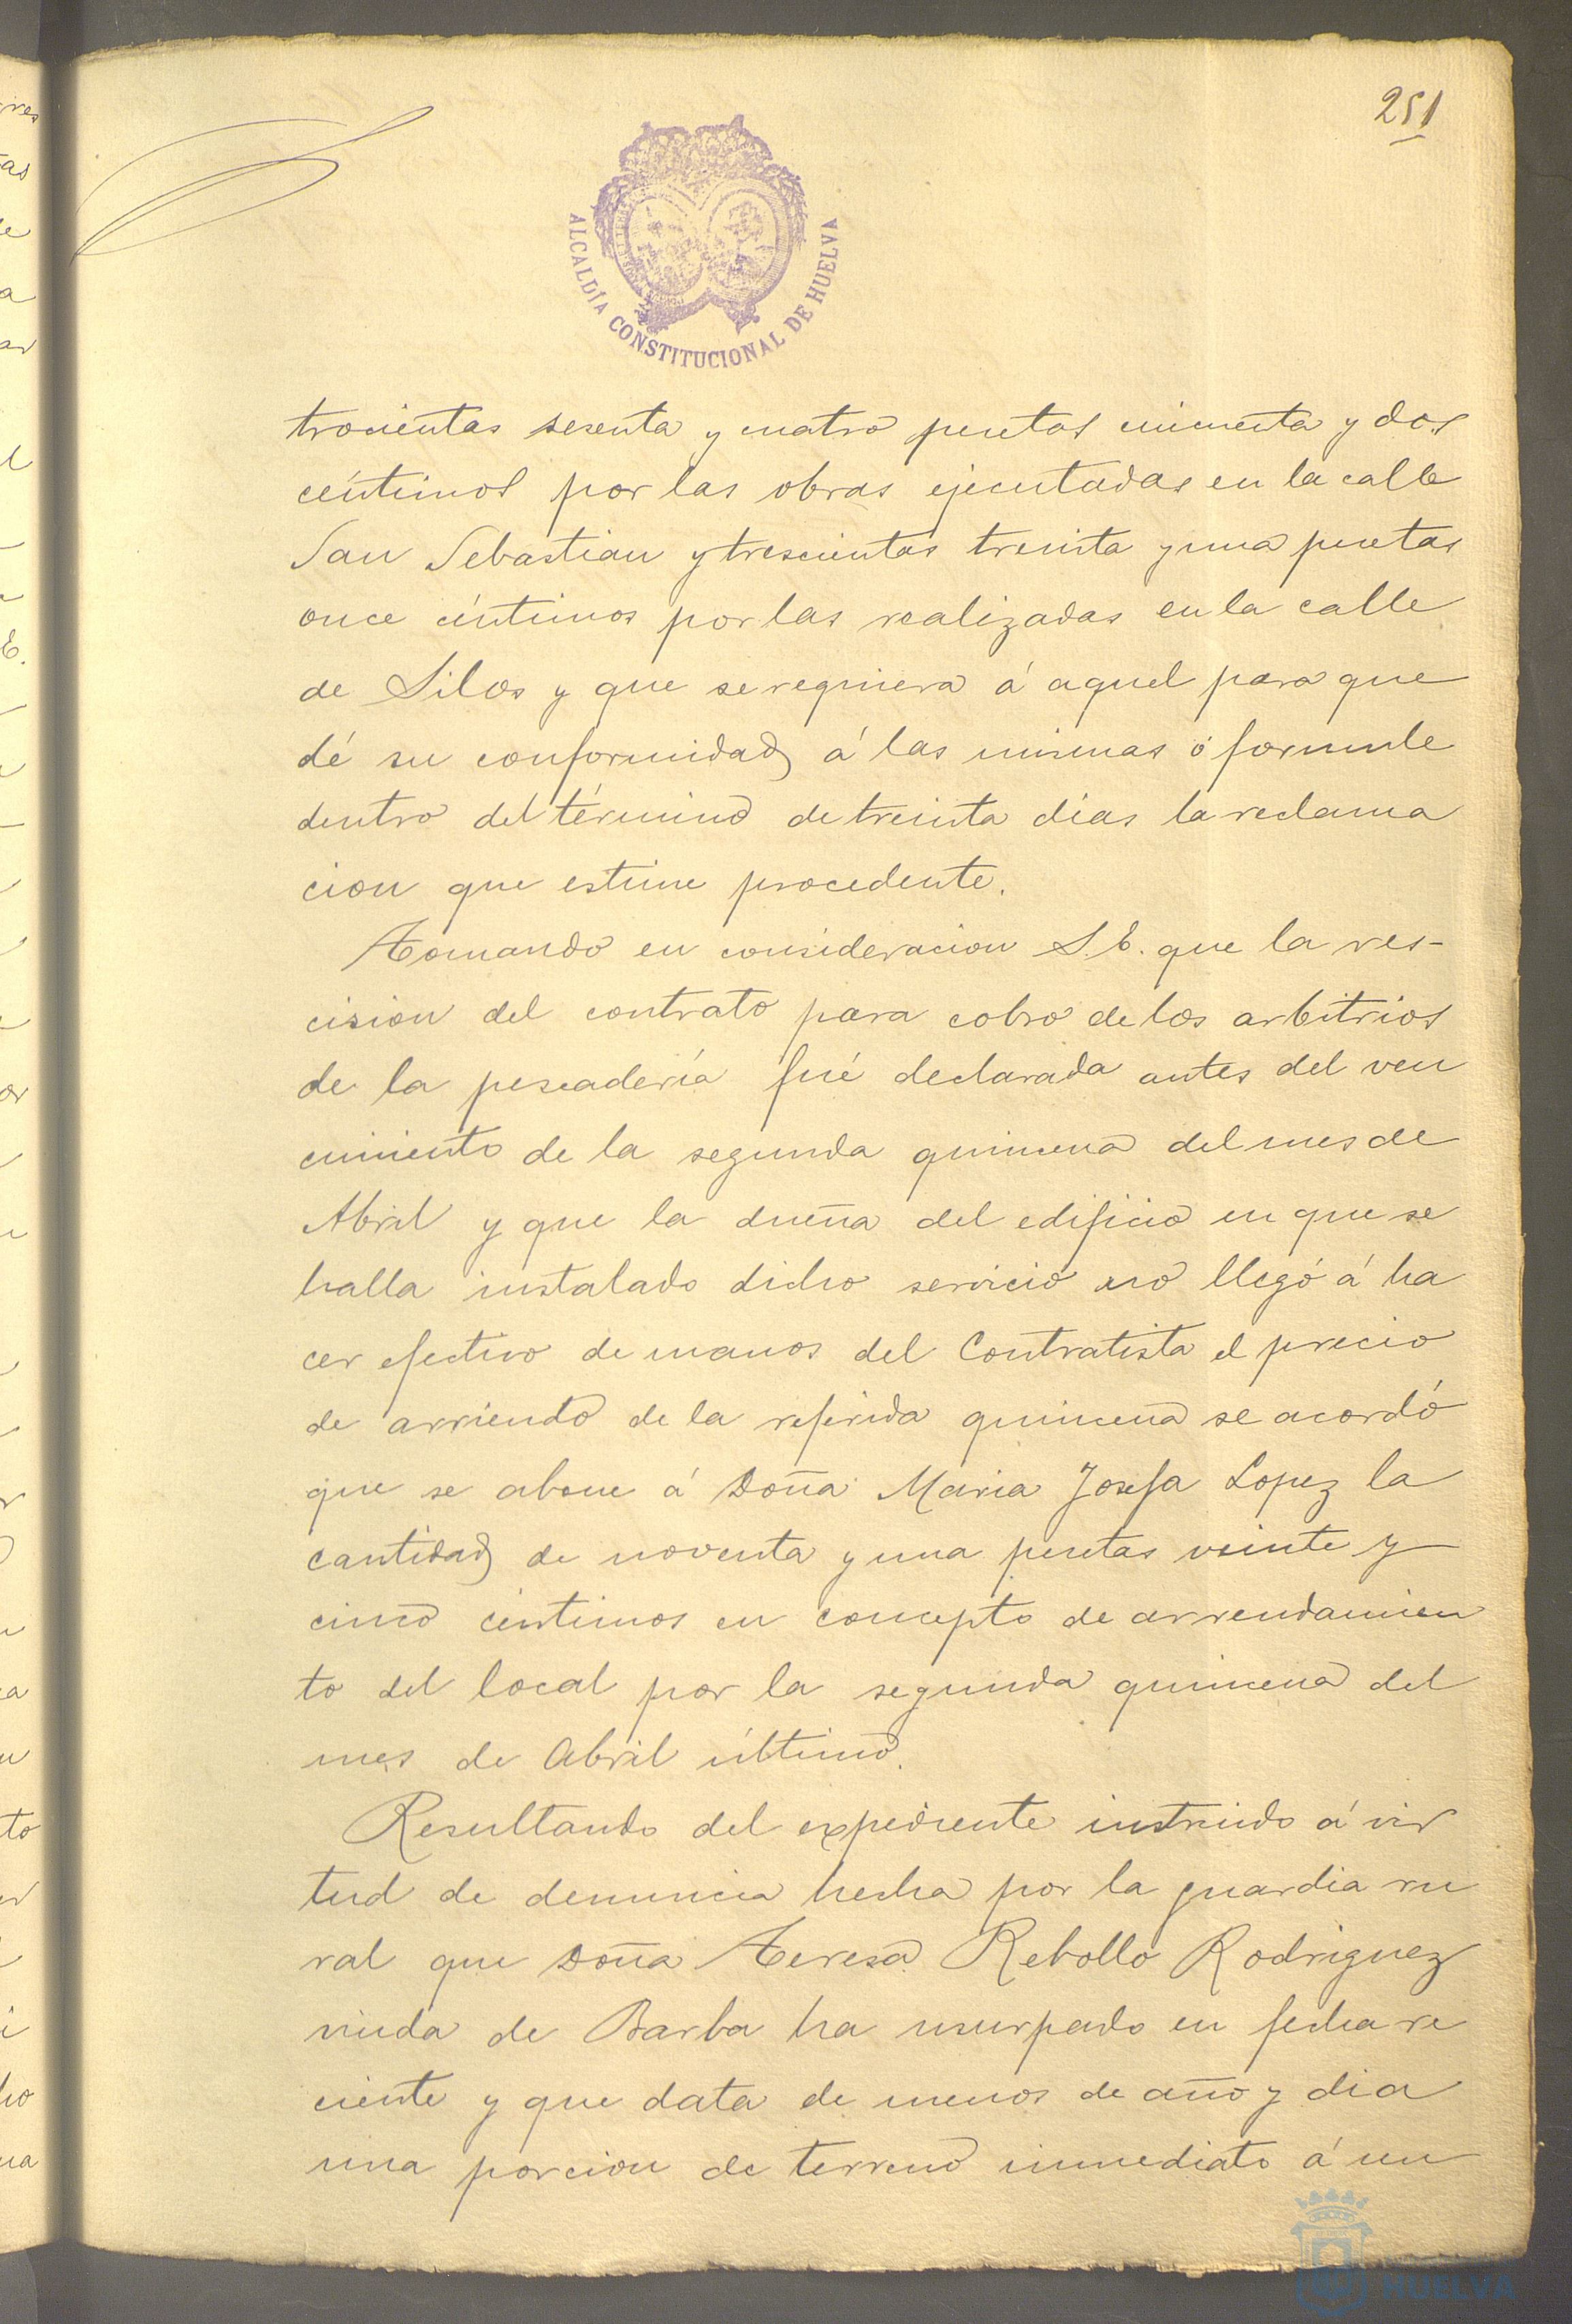 251
ALCALDÍA CONSTITUCIONAL DE HUELVA
trocientas sesenta y cuatro pesetas cincuenta y dos
céntimos por las obras ejecutadas en la calle
San Sebastian y trescientas treinta y una pesetas
once céntimos por las realizadas en la calle
de Silos y que se requiera á aquel para que
dé su conformidad á las mismas ó formule
dentro del término de treinta dias la reclama
cion que estime procedente.
Tomando en consideracion S.E. que la res-
cision del contrato para cobro de los arbitrios
de la pescadería fué declarada antes del ven
cimiento de la segunda quincena del mes de
Abril y que la dueña del edificio en que se
halla instalado dicho servicio no llegó á ha
cer efectivo de manos del Contratista el precio
de arriendo de la referida quincena se acordó
que se abone á Doña Maria Josefa Lopez la
cantidad de noventa y una pesetas veinte y
cinco céntimos en concepto de arrendamien
to del local por la segunda quincena del
mes de Abril último.
Resultando del expediente instruido á vir
tud de denuncia hecha por la guardia ru
ral que Doña Teresa Rebollo Rodriguez
viuda de Barba ha usurpado en fecha re
ciente y que data de menos de año y dia
una porcion de terreno inmediato á un
HUELVA